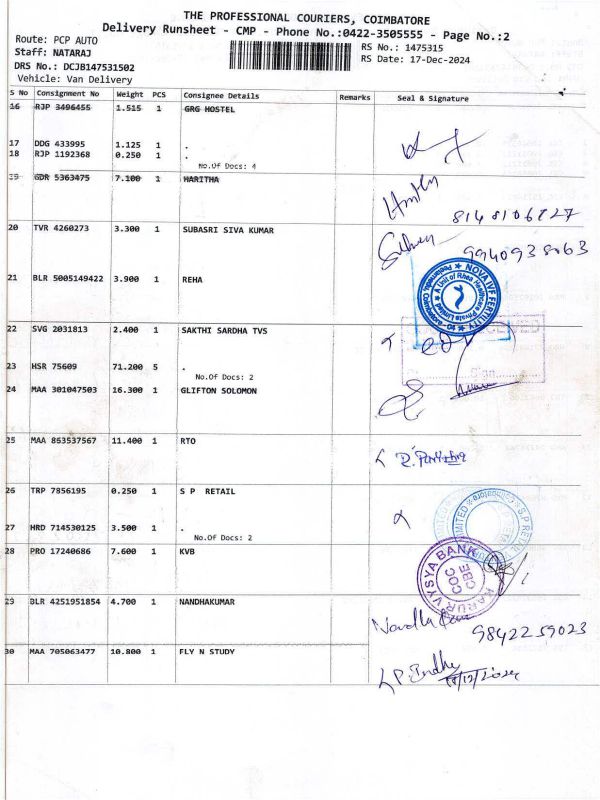 THE PROFESSIONAL COURIERS, COIMBATORE
Delivery Runsheet - CMP - Phone No.:0422-3505555 - Page No.:2
Route: PCP AUTO
Staff: NATARAJ
DRS No.: DCJB147531502
Vehicle: Van Delivery
RS No.: 1475315
RS Date: 17-Dec-2024
S No Consignment No Weight PCS Consignee Details Remarks Seal & Signature
16 RJP 3496455 1.515 1 GRG HOSTEL
17 DDG 433995 1.125 1 .
18 RJP 1192368 0.250 1 .
No.Of Docs: 4
19 GDR 5363475 7.100 1 HARITHA
8148106827
20 TVR 4260273 3.300 1 SUBASRI SIVA KUMAR
9940938063
21 BLR 5005149422 3.900 1 REHA
NOVA IVF FERTILITY
A Unit of Rhea Healthcare Private Limited
22 SVG 2031813 2.400 1 SAKTHI SARDHA TVS
23 HSR 75609 71.200 5 .
No.Of Docs: 2
24 MAA 301047503 16.300 1 GLIFTON SOLOMON
25 MAA 863537567 11.400 1 RTO
26 TRP 7856195 0.250 1 S P RETAIL
27 HRD 714530125 3.500 1 .
No.Of Docs: 2
28 PRO 17240686 7.600 1 KVB
KARUR VYSYA BANK
COC
CBE
29 BLR 4251951854 4.700 1 NANDHAKUMAR
9842259023
30 MAA 705063477 10.800 1 FLY N STUDY
18/12/2024